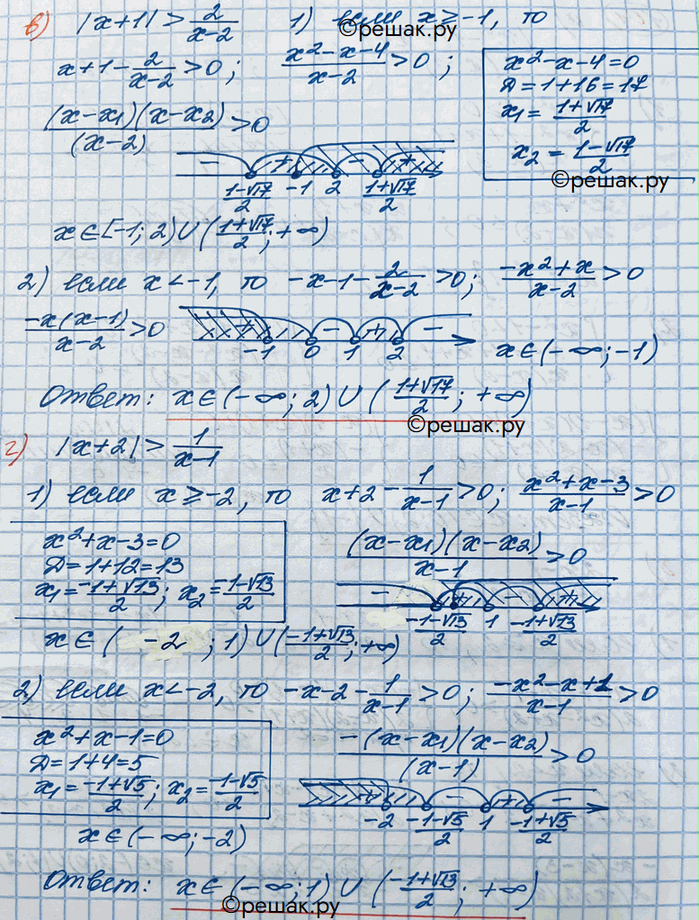 в) |x+1| > 2/(x-2) 1) если x ≥ -1, то
©решак.ру
x+1 - 2/(x-2) > 0; (x²-x-4)/(x-2) > 0;
x²-x-4=0
Д=1+16=17
x₁ = (1+√17)/2
x₂ = (1-√17)/2
©решак.ру
(x-x₁)(x-x₂)/(x-2) > 0
- + - +
(1-√17)/2 -1 2 (1+√17)/2
x∈[-1; 2)∪((1+√17)/2; +∞)
2) если x < -1, то -x-1 - 2/(x-2) > 0; (-x²+x)/(x-2) > 0
-x(x-1)/(x-2) > 0
- + -
-1 0 1 2
x∈(-∞; -1)
Ответ: x∈(-∞; 2)∪((1+√17)/2; +∞)
©решак.ру
г) |x+2| > 1/(x-1)
1) если x ≥ -2, то x+2 - 1/(x-1) > 0; (x²+x-3)/(x-1) > 0
x²+x-3=0
Д=1+12=13
x₁ = (-1+√13)/2; x₂ = (-1-√13)/2
(x-x₁)(x-x₂)/(x-1) > 0
- + - +
(-1-√13)/2 1 (-1+√13)/2
x∈( -2 ; 1)∪((-1+√13)/2; +∞)
2) если x < -2, то -x-2 - 1/(x-1) > 0; (-x²-x+1)/(x-1) > 0
x²+x-1=0
Д=1+4=5
x₁ = (-1+√5)/2; x₂ = (-1-√5)/2
-(x-x₁)(x-x₂)/(x-1) > 0
+ - + -
-2 (-1-√5)/2 1 (-1+√5)/2
x∈(-∞; -2)
Ответ: x∈(-∞; 1)∪((-1+√13)/2; +∞)
©решак.ру